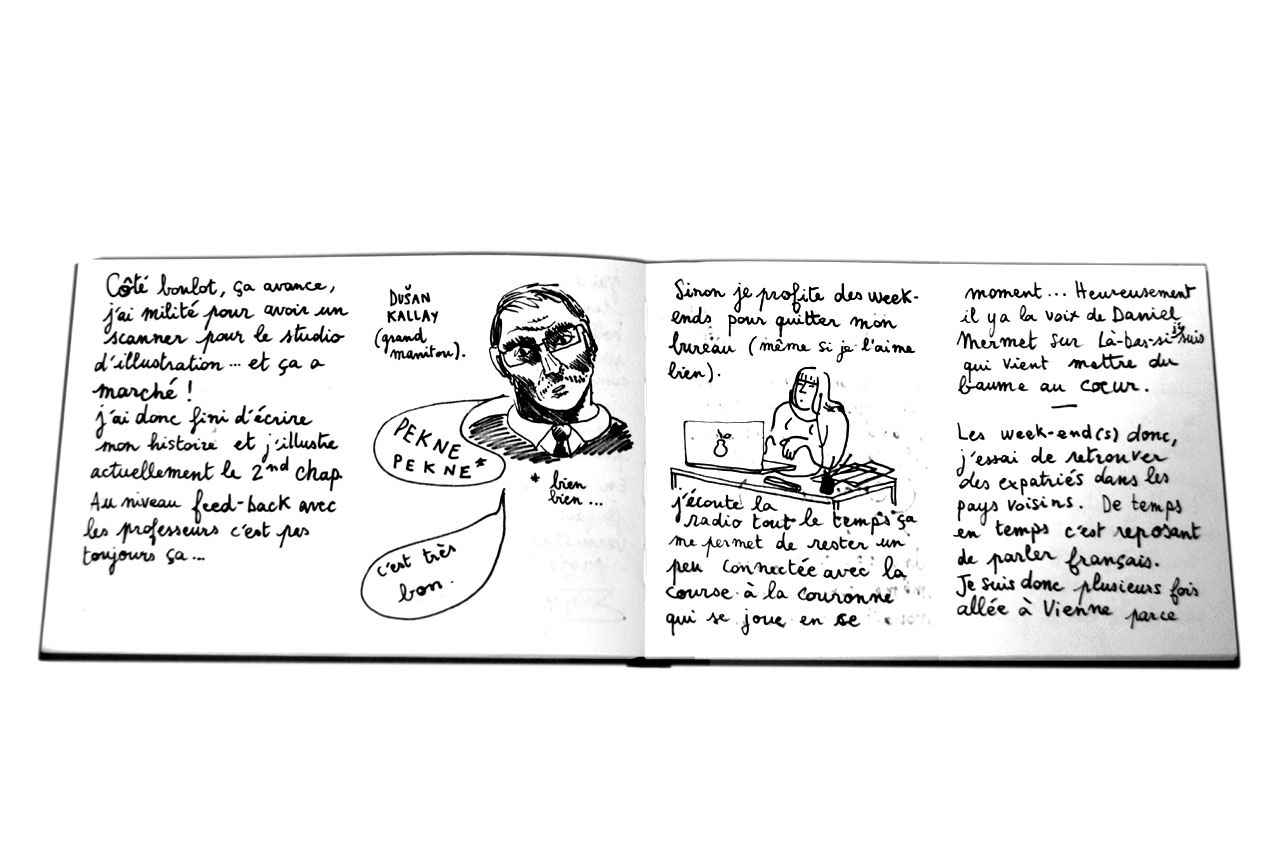 Côté boulot, ça avance,
j'ai milité pour avoir un
scanner pour le studio
d'illustration... et ça a
marché !
j'ai donc fini d'écrire
mon histoire et j'illustre
actuellement le 2nd chap.
Au niveau feed-back avec
les professeurs c'est pas
toujours ça...
DUŠAN
KALLAY
(grand
manitou).
PEKNE
PEKNE*
* bien
bien...
c'est très
bon.
Sinon je profite des week-
ends pour quitter mon
bureau (même si je l'aime
bien).
j'écoute la
radio tout le temps ça
me permet de rester un
peu connectée avec la
course à la couronne
qui se joue en ce
moment... Heureusement
il y a la voix de Daniel
Mermet sur Là-bas-si-j'y suis
qui vient mettre du
baume au cœur.
Les week-end(s) donc,
j'essai de retrouver
des expatriés dans les
pays voisins. De temps
en temps c'est reposant
de parler français.
Je suis donc plusieurs fois
allée à Vienne parce